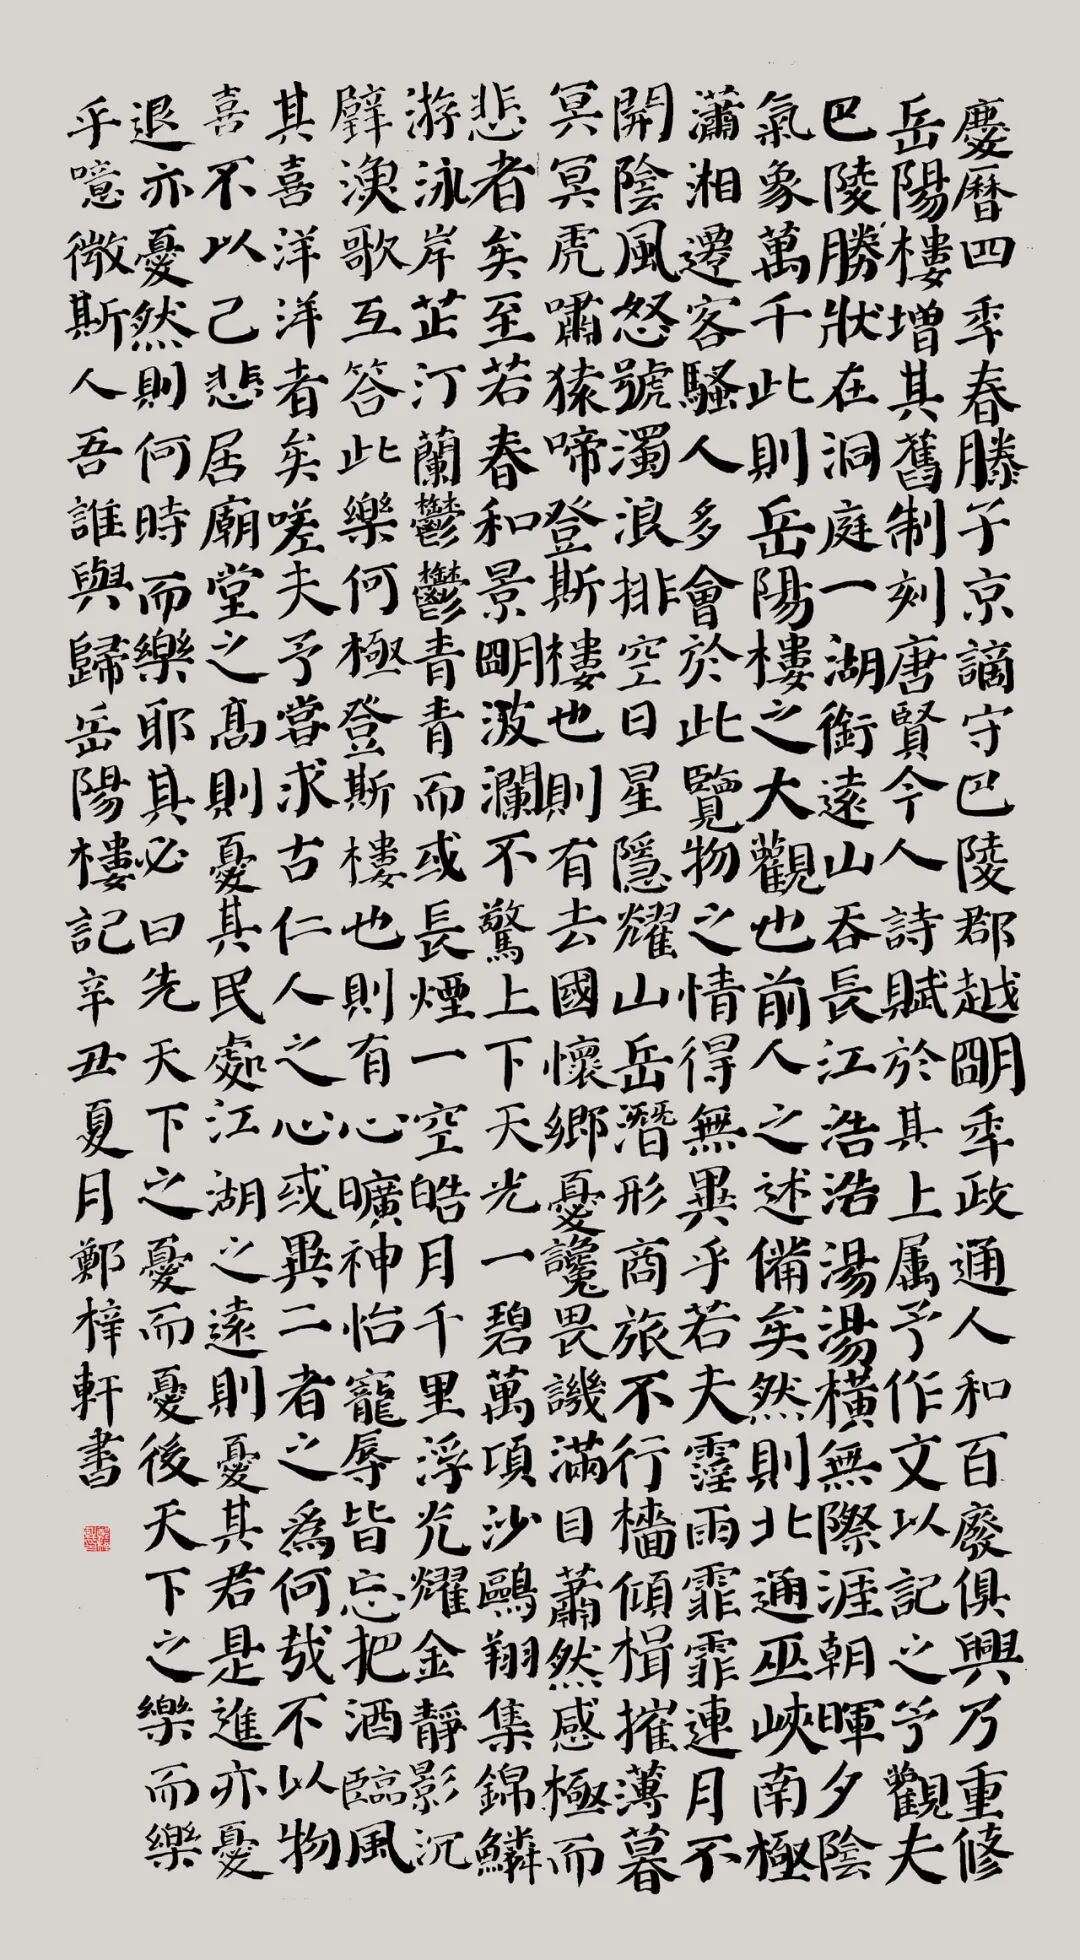 慶曆四年春滕子京謫守巴陵郡越明年政通人和百廢俱興乃重修
岳陽樓增其舊制刻唐賢今人詩賦於其上属予作文以記之予觀夫
巴陵勝狀在洞庭一湖銜遠山吞長江浩浩湯湯橫無際涯朝暉夕陰
氣象萬千此則岳陽樓之大觀也前人之述備矣然則北通巫峽南極
瀟湘遷客騷人多會於此覽物之情得無異乎若夫霪雨霏霏連月不
開陰風怒號濁浪排空日星隱耀山岳潛形商旅不行檣傾楫摧薄暮
冥冥虎嘯猿啼登斯樓也則有去國懷鄉憂讒畏譏滿目蕭然感極而
悲者矣至若春和景明波瀾不驚上下天光一碧萬項沙鷗翔集錦鱗
游泳岸芷汀蘭鬱鬱青青而或長煙一空皓月千里浮光耀金靜影沉
璧漁歌互答此樂何極登斯樓也則有心曠神怡寵辱皆忘把酒臨風
其喜洋洋者矣嗟夫予嘗求古仁人之心或異二者之為何哉不以物
喜不以己悲居廟堂之高則憂其民處江湖之遠則憂其君是進亦憂
退亦憂然則何時而樂耶其必曰先天下之憂而憂後天下之樂而樂
乎噫微斯人吾誰與歸岳陽樓記辛丑夏月鄭梓軒書